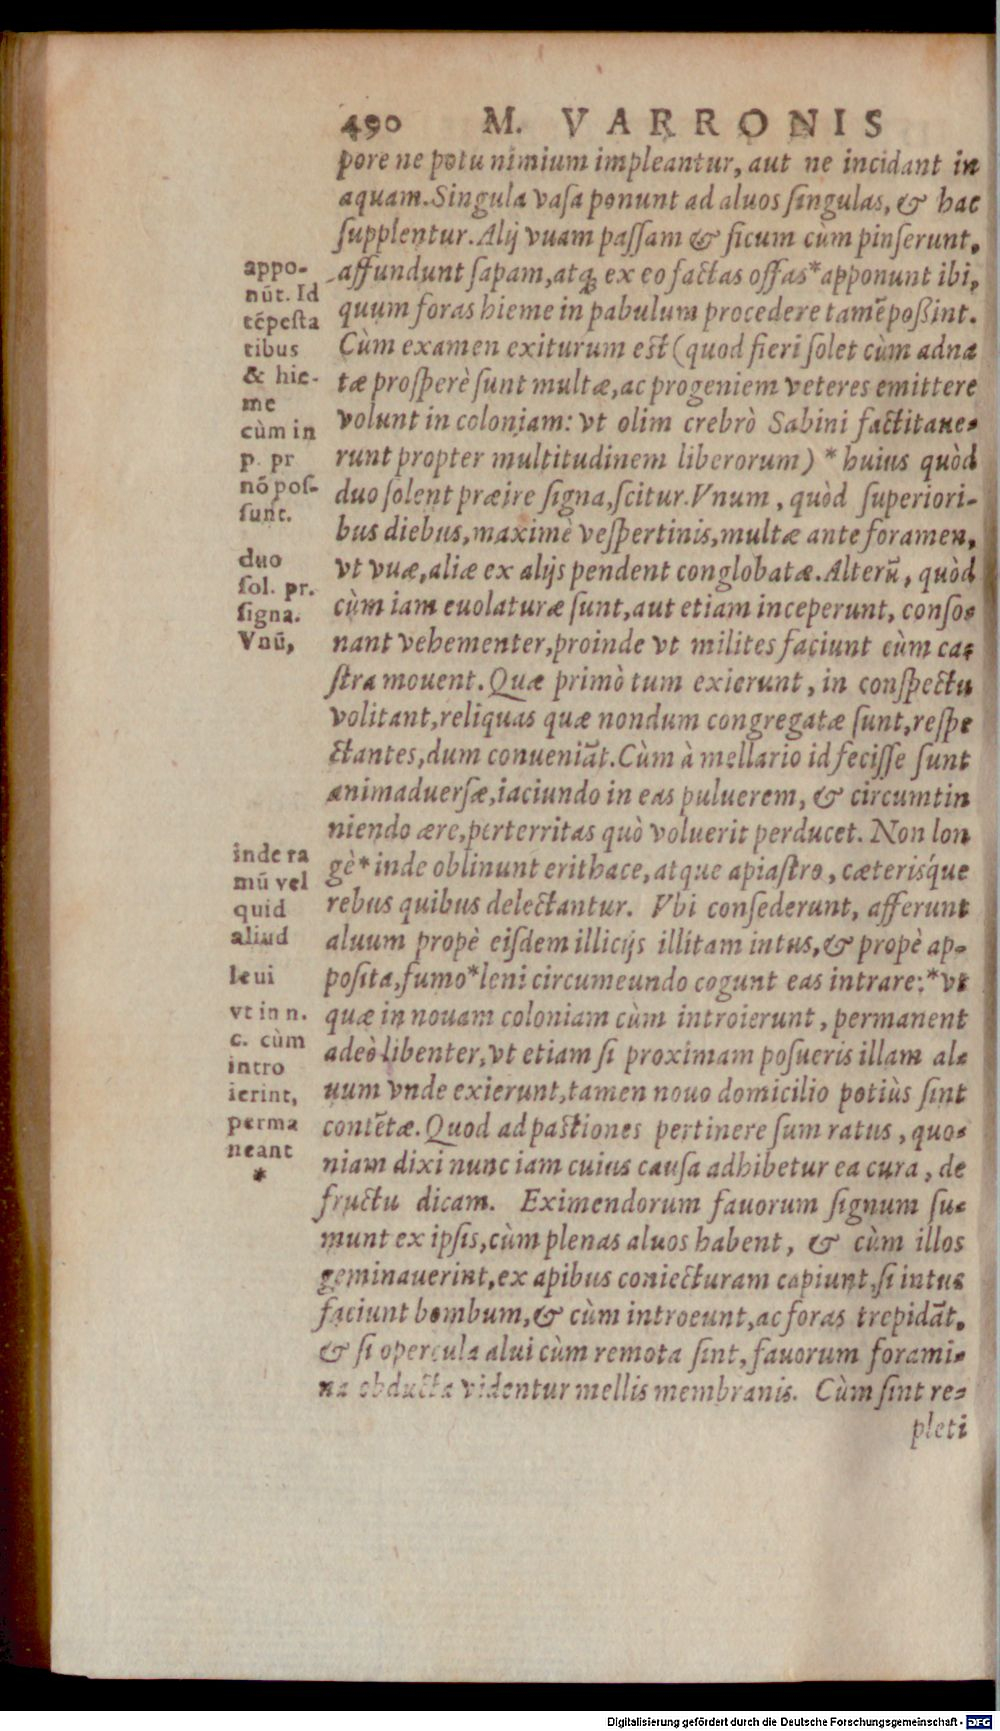 490 M. VARRONIS
pore ne potu nimium impleantur, aut ne incidant in
aquam. Singula vaſa ponunt ad aluos ſingulas, & hac
ſupplentur. Alij vuam paſſam & ficum cùm pinſerunt,
affundunt ſapam, atq; ex eo factas offas* apponunt ibi,
quum foras hieme in pabulum procedere tamē poßint.
Cùm examen exiturum eſt (quod fieri ſolet cùm adna
tæ proſperè ſunt multæ, ac progeniem veteres emittere
volunt in coloniam: vt olim crebrò Sabini factitaue-
runt propter multitudinem liberorum) * huius quòd
duo ſolent præire ſigna, ſcitur. Vnum, quòd ſuperiori-
bus diebus, maximè veſpertinis, multæ ante foramen,
vt vuæ, aliæ ex alijs pendent conglobatæ. Alterū, quòd
cùm iam euolaturæ ſunt, aut etiam inceperunt, conſo-
nant vehementer, proinde vt milites faciunt cùm ca-
ſtra mouent. Quæ primò tum exierunt, in conſpectu
volitant, reliquas quæ nondum congregatæ ſunt, reſpe
ctantes, dum conueniāt. Cùm à mellario id feciſſe ſunt
animaduerſæ, iaciundo in eas puluerem, & circumtin
niendo ære, perterritas quò voluerit perducet. Non lon
gè* inde oblinunt erithace, atque apiaſtro, cæterisq́ue
rebus quibus delectantur. Vbi conſederunt, afferunt
aluum propè eiſdem illicijs illitam intus, & propè ap-
poſita, fumo* leni circumeundo cogunt eas intrare: * vt
quæ in nouam coloniam cùm introierunt, permanent
adeò libenter, vt etiam ſi proximam poſueris illam al-
uum vnde exierunt, tamen nouo domicilio potiùs ſint
contētæ. Quod ad paſtiones pertinere ſum ratus, quo-
niam dixi nunc iam cuius cauſa adhibetur ea cura, de
fructu dicam. Eximendorum fauorum ſignum ſu-
munt ex ipſis, cùm plenas aluos habent, & cùm illos
geminauerint, ex apibus coniecturam capiunt, ſi intus
faciunt bombum, & cùm introeunt, ac foras trepidāt,
& ſi opercula alui cùm remota ſint, fauorum forami-
na obducta videntur mellis membranis. Cùm ſint re-
pleti
appo-
nūt. Id
tēpeſta
tibus
& hie-
me
cùm in
p. pr
nō poſ-
ſunt.
duo
ſol. pr.
ſigna.
Vnū,
inde ra
mū vel
quid
aliud
leui
vt in n.
c. cùm
intro
ierint,
perma
neant
*
Digitalisierung gefördert durch die Deutsche Forschungsgemeinschaft - DFG